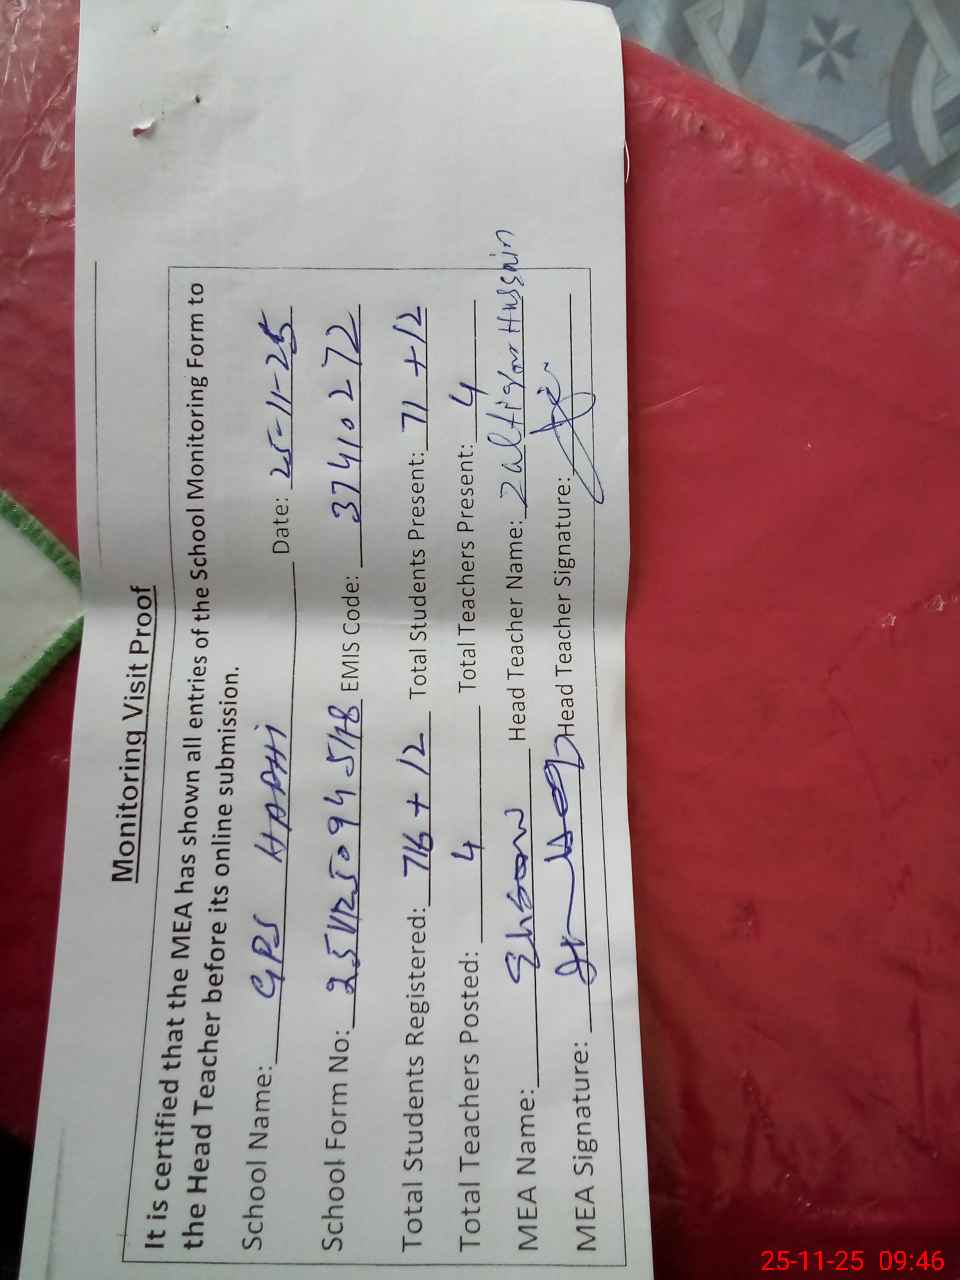 Monitoring Visit Proof
It is certified that the MEA has shown all entries of the School Monitoring Form to
the Head Teacher before its online submission.
School Name: GPS HADHI Date: 25-11-25
School Form No: EMIS Code: 37410272
Total Students Registered: 76 + 12 Total Students Present: 71 + 12
Total Teachers Posted: 4 Total Teachers Present: 4
MEA Name: Head Teacher Name: Hussain
MEA Signature: Head Teacher Signature:
25-11-25 09:46